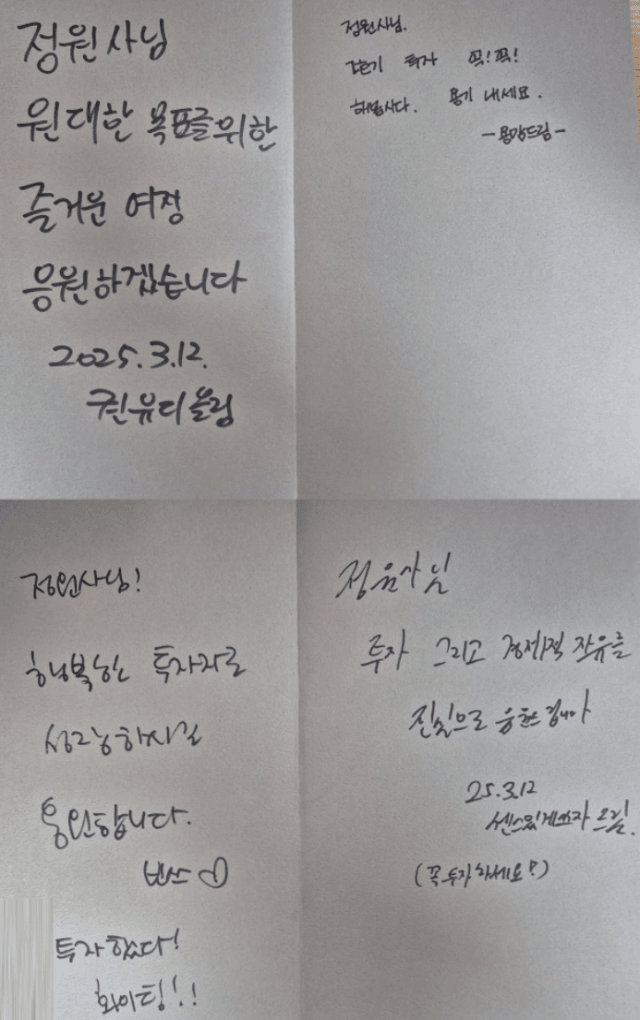 정원사님
원대한 목표를 위한
즐거운 여정
응원하겠습니다
2025.3.12.
권유디 올림
정원사님.
투자 꼭! 꼭!
해봅시다. 용기 내세요.
-용맘드림-
정원사님!
행복한 투자자로
성공하시길
응원합니다.
빈쓰♡
투자했다!
화이팅!!
정원사님
투자 그리고 경제적 자유를
진심으로 응원합니다
25.3.12
센스있게쓰자 드림.
(꼭 투자하세요!)